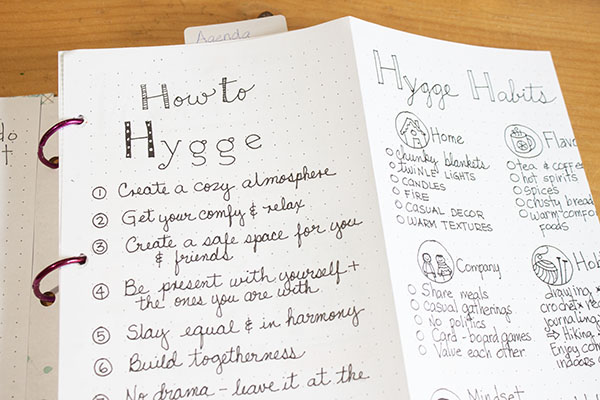 Agenda
do
t
How to
Hygge
① Create a cozy atmosphere
② Get your comfy & relax
③ Create a safe space for you
& friends
④ Be present with yourself +
the ones you are with
⑤ Stay equal & in harmony
⑥ Build togetherness
⑦ No drama - leave it at the
Hygge Habits
Home
○ Chunky blankets
○ TWINKLE LIGHTS
○ CANDLES
○ FIRE
○ CASUAL DECOR
○ WARM TEXTURES
Flavo
○ tea & coffe
○ hot spirits
○ spices
○ crusty bread
○ warm comfo
foods
Company
○ Share meals
○ casual gatherings
○ No politics
○ Card - board games
○ Value each other
Hob
crochet
journaling
⇒ Hiking
Enjoy com
indoors
Mindset